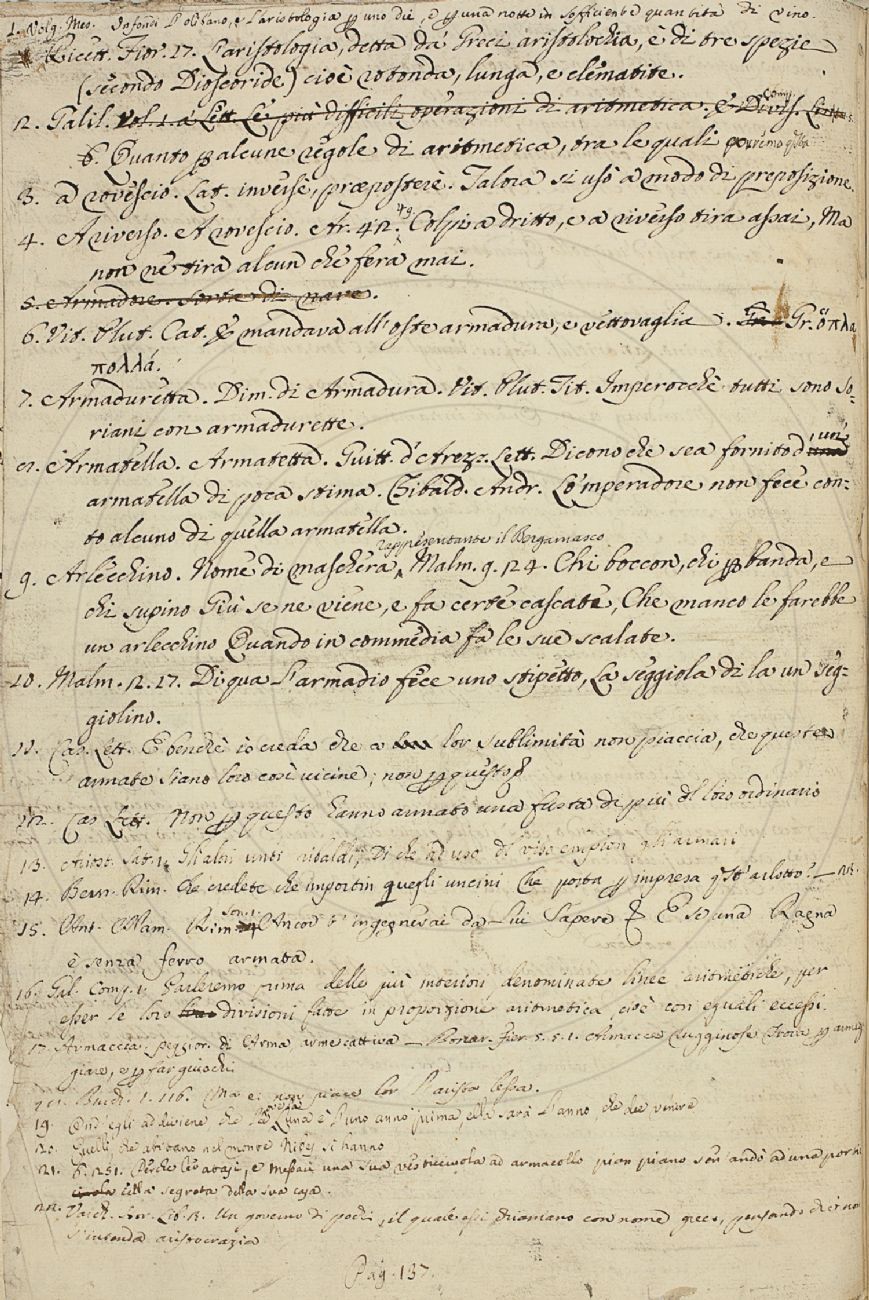 1. Volg. Mes. Infondi l'olibano, e l'aristologia p uno die, e p una notte in sofficiente quantità di vino.
Ricett. Fior. 27. L'aristologia, detta da' Greci aristolochia, è di tre spezie
(secondo Dioscoride) cioè rotonda, lunga, e clematite.
2. Galil. Vol. 1. a Lett. Le più difficili operazioni di aritmetica. & Divis. Comp.
6. Quanto p alcune regole di aritmetica, tra le quali
3. A rovescio. Lat. inverse, præpostere. Talora si usò a modo di preposizione.
4. A riverso. A rovescio. Ar. 42. Colpi a dritto, e a riverso tira assai, Ma
non ne tira alcun che fera mai.
5. Armadore. Sorta di nave.
6. Vit. Plut. Cat. E mandava all'oste armadura, e vettovaglia. Gr. ὅπλα
πολλά.
7. Armaduretta. Dim. di Armadura. Vit. Plut. Tit. Imperocchè tutti sono So-
riani con armadurette.
8. Armatella. Armatetta. Guitt. d'Arezz. Lett. Dicono che sea fornito d'un'
armatella di poca stima. Tibald. Andr. Lo 'mperadore non fece con-
to alcuno di quella armatella.
9. Arlecchino. Nome di maschera rappresentante il Bergamasco, Malm. 9. 24. Chi boccon, chi p banda, e
chi supino Giù se ne viene, e fa certe cascate, Che manco le farebbe
un arlecchino Quando in commedia fa le sue scalate.
10. Malm. 12. 27. Di qua l'armadio fece uno stipetto, La seggiola di la un seg-
giolino.
11. Cas. Lett. E benchè io creda che a lor sublimità non piaccia, che queste
armate siano loro così vicine; non p questo &
12. Cas. Lett. Non p questo hanno armato una fusta di più del loro ordinario
13. Ariost. Sat. 1. Gli altri unti ribaldi, Di che ad uso di viso empion gli armari
14. Bern. Rim. che credete che importin quegli uncini Che porta p impresa
15. Ant. Alam. Rim. Son. 1. Ancor t'ingegnerai da lui Sapere & E se una Ragna
è senza ferro armata.
16. Gal. Comp. 1. Parleremo prima delle più interiori denominate linee aritmetiche, per
esser le loro divisioni fatte in proporzione aritmetica, cioè con eguali eccessi.
17. Armaccia. peggior. di Arma arme cattiva — Buonar. Fier. 5. 5. 1. Armacce rugginose Trova p
giare, e p far giuochi.
18. Burch. 1. 116. Ma e' non piace lor l'arista lessa.
19. Ond' egli addiviene che la Luna è l'uno anno prima, ella sarà l'anno che dee venire
20. Quelli, che abitano nel monte si hanno
21. 6. 251. Perchè levatasi, e messasi una sua vesticciuola ad armacollo pian piano sen andò ad una
cella segreta della sua casa.
22. Varch. Stor. Lib. 13. Un governo di pochi, il quale essi chiamano con nome greco, pensando che non
s'intenda aristocrazia
Pag. 137.